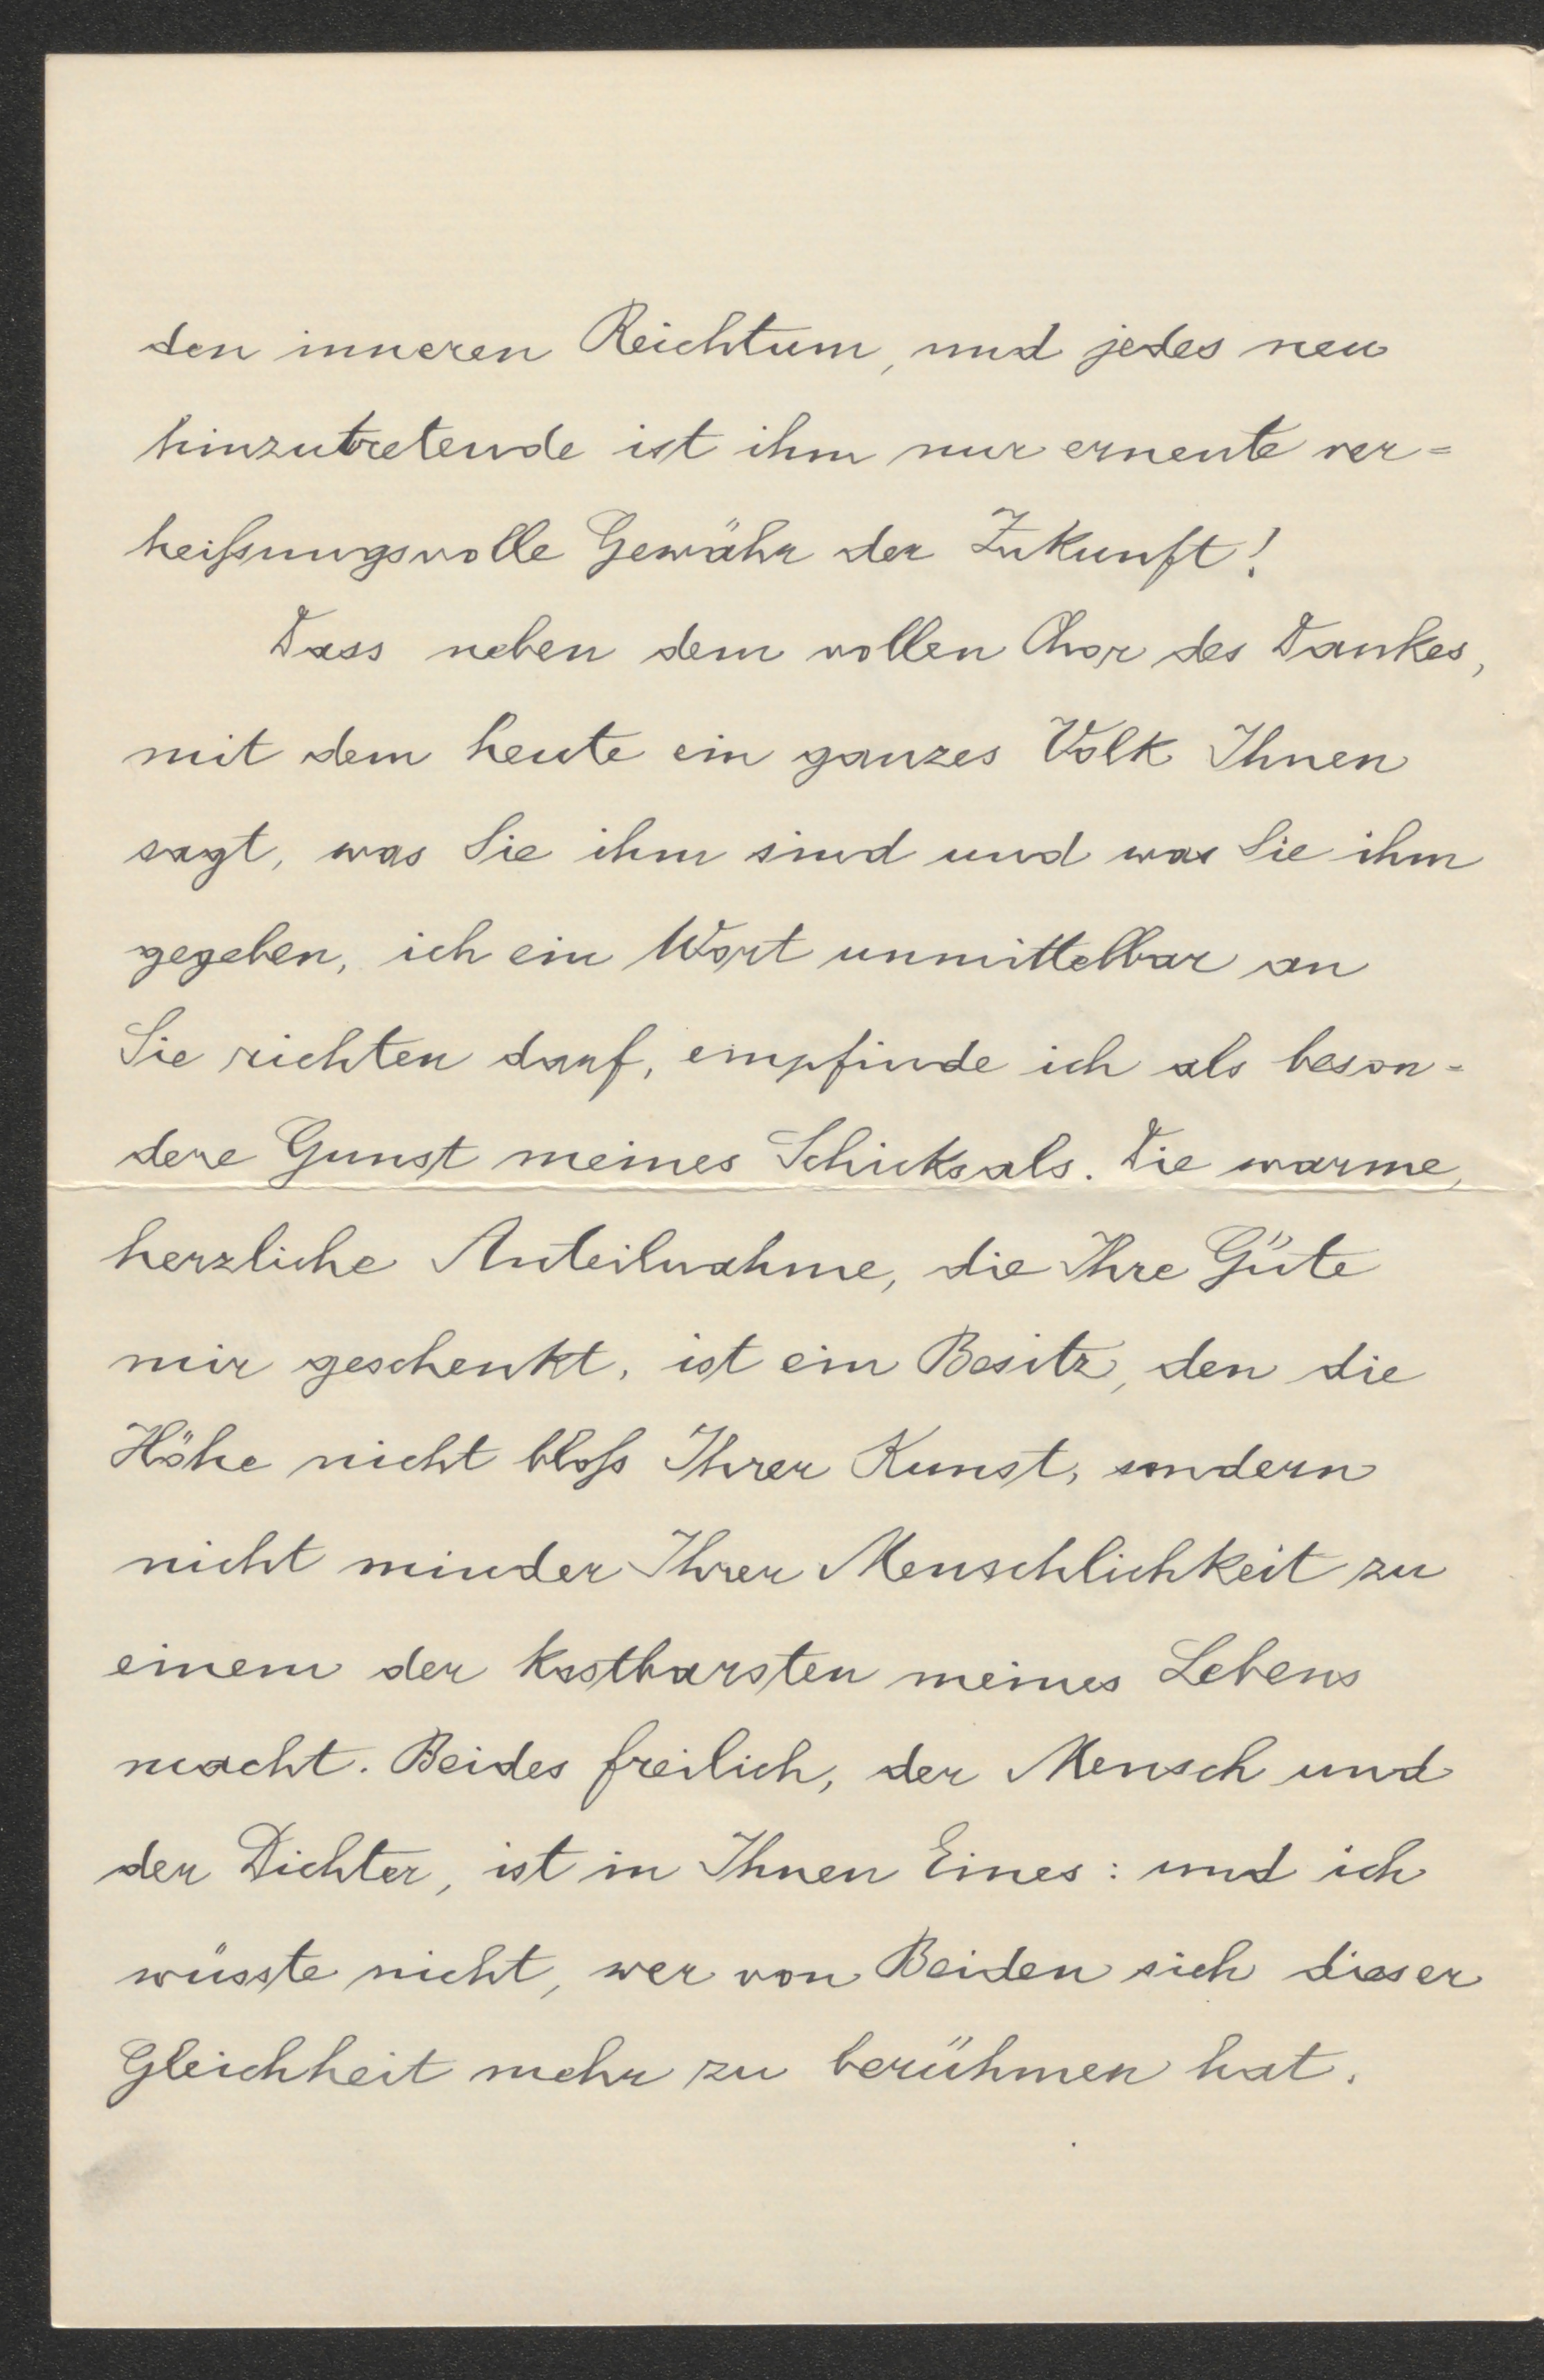 den inneren Reichtum, und jedes neu
hinzutretende ist ihm nur erneute ver=
heißungsvolle Gewähr der Zukunft!
Dass neben dem vollen Chor des Dankes,
mit dem heute ein ganzes Volk Ihnen
sagt, was Sie ihm sind und was Sie ihm
gegeben, ich ein Wort unmittelbar an
Sie richten darf, empfinde ich als beson=
dere Gunst meines Schicksals. Die warme,
herzliche Anteilnahme, die Ihre Güte
mir geschenkt, ist ein Besitz, den die
Höhe nicht bloß Ihrer Kunst, sondern
nicht minder Ihrer Menschlichkeit zu
einem der kostbarsten meines Lebens
macht. Beides freilich, der Mensch und
der Dichter, ist in Ihnen Eines: und ich
wüsste nicht, wer von Beiden sich dieser
Gleichheit mehr zu berühmen hat.